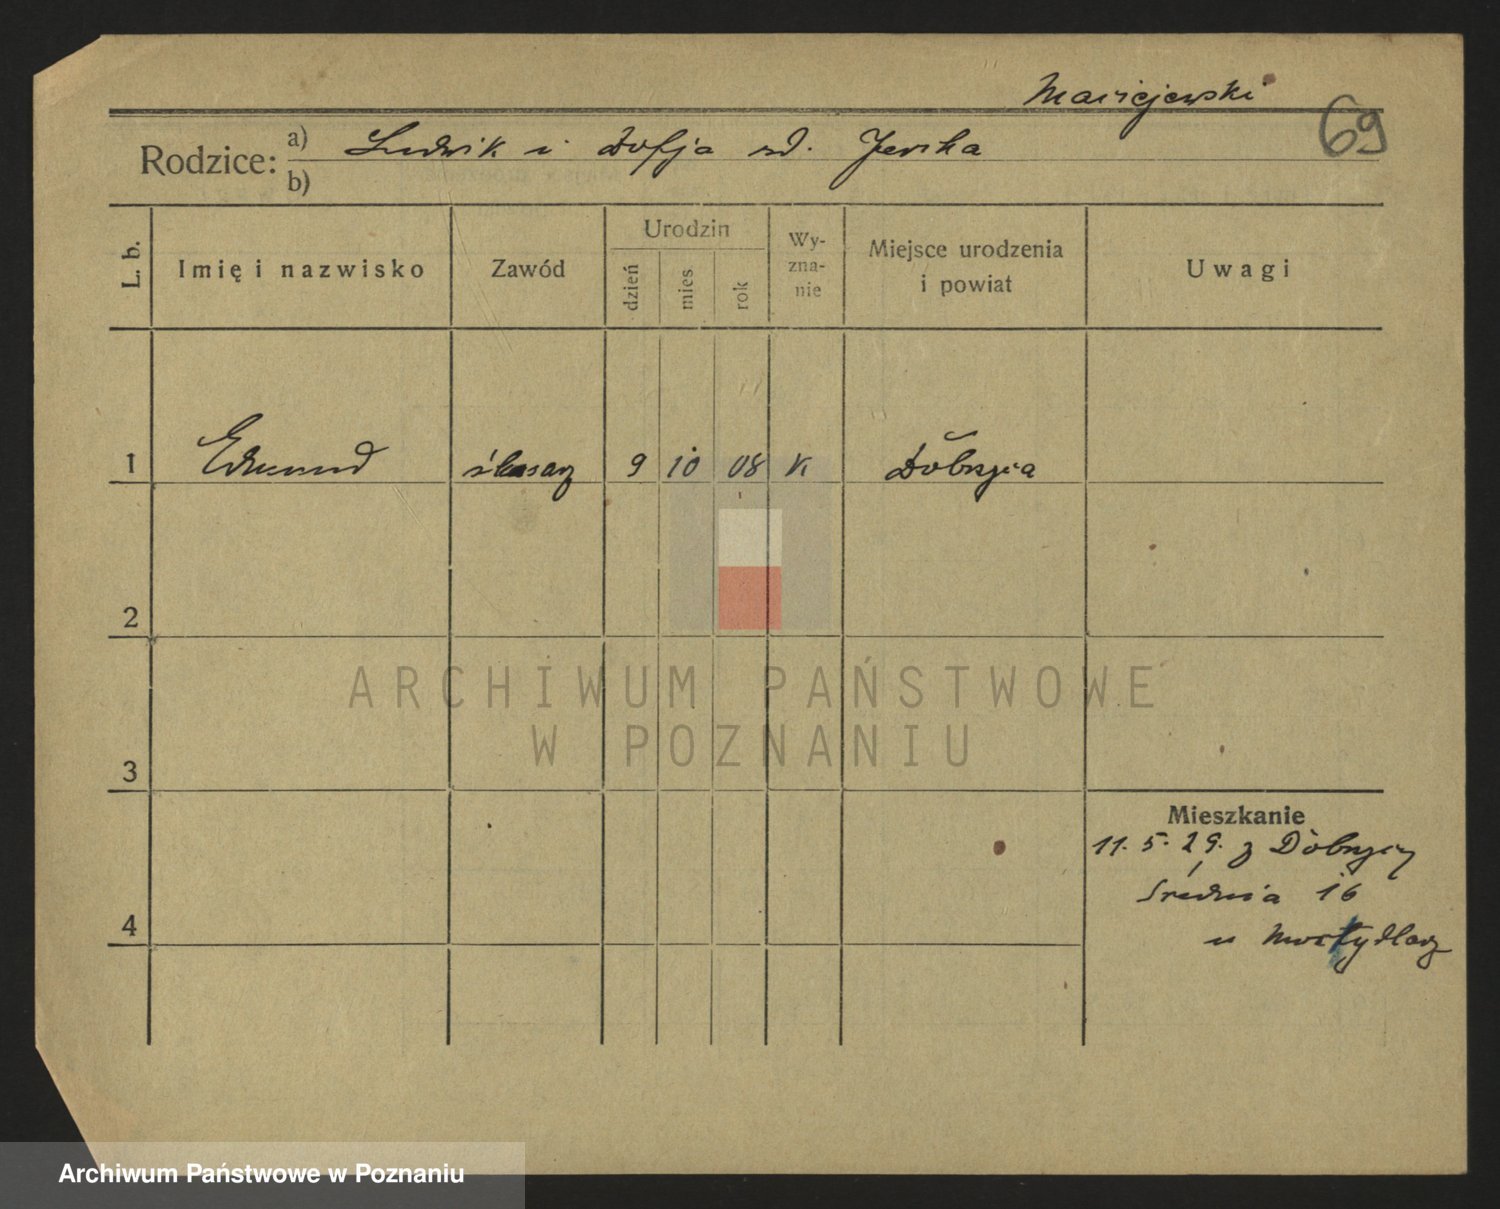 Maciejewski
69
Rodzice: a) Ludwik i Zofja zd. Jerska
b)
L. b. Imię i nazwisko Zawód Urodzin dzień mies rok Wy-zna-nie Miejsce urodzenia i powiat Uwagi
1 Edmund ślusarz 9 10 08 K Dobrzyca
2
3
4
Mieszkanie
11. 5. 29. z Dobrzycy
Średnia 16
u
ARCHIWUM PAŃSTWOWE
W POZNANIU
Archiwum Państwowe w Poznaniu